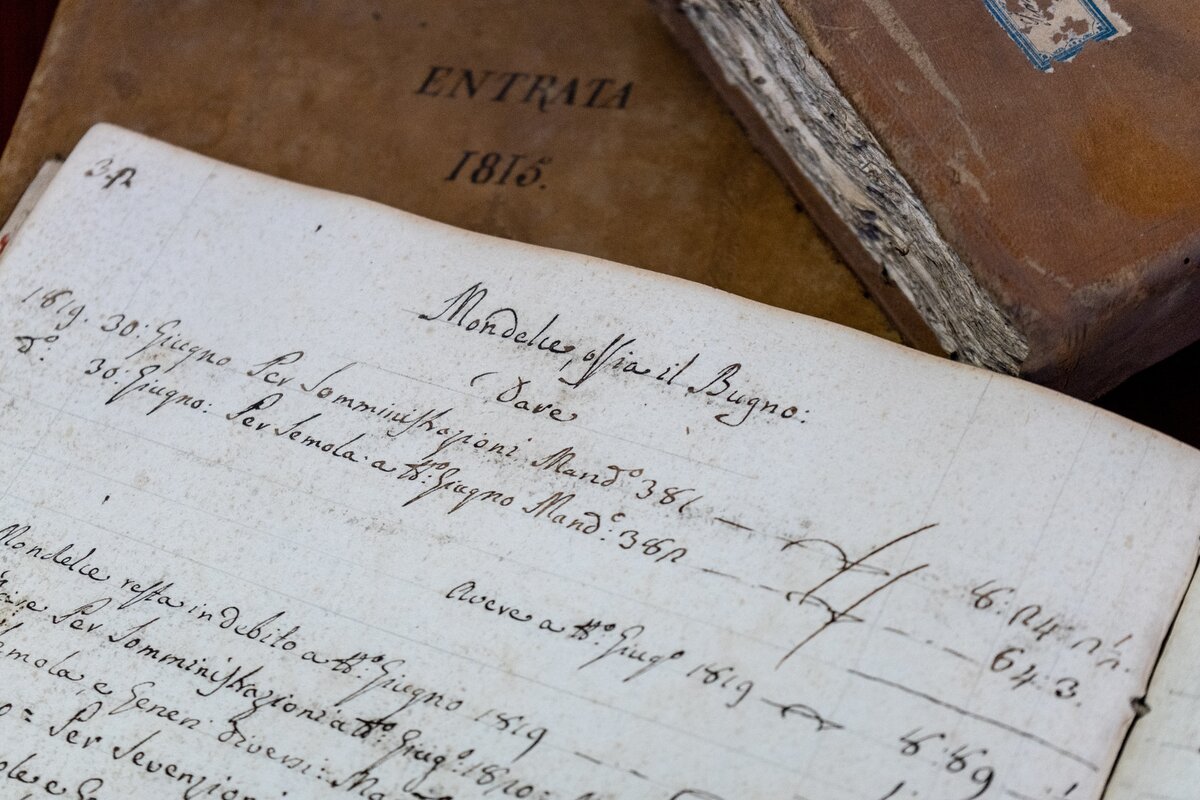 ENTRATA
1815.
32
Mondelce, ossia il Bugno:
Dare
1819. 30: Giugno Per Somministrazioni Mand.º 381
d.º 30. Giugno: Per Semola a tt.º Giugno Mand.º: 382 64: 3.
Avere a tt.º Giug.º 1819
Mondelce resta in debito a tt.º Giugno 1819
Per Somministrazioni a tt.º Giug.º: 1820:
Semola, e Generi diversi:
= Per Sevenzioni